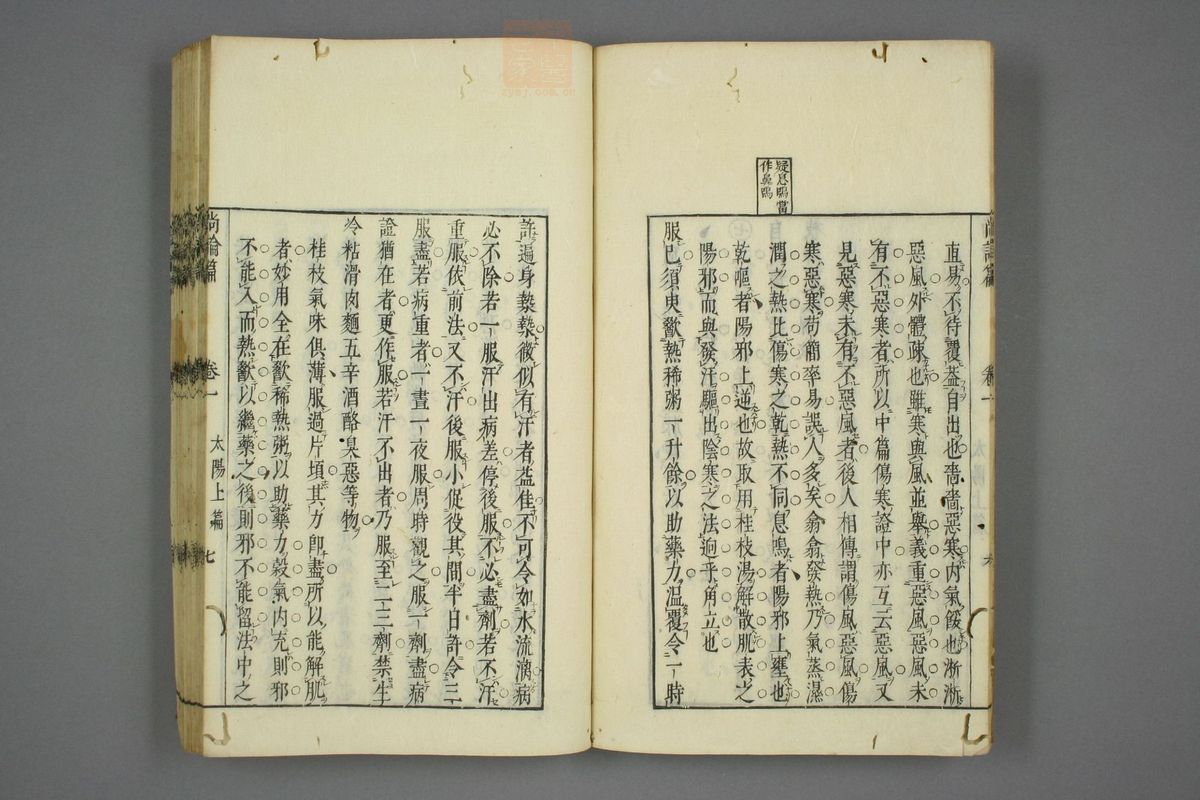 疑息鳴當
作鼻鳴
直易不待覆葢自出也嗇嗇惡寒内氣餒也淅淅
惡風外體疎也雖寒與風並舉義重惡風惡風未
有不惡寒者所以中篇傷寒證中亦互云惡風又
見惡寒未有不惡風者後人相傳謂傷風惡風傷
寒惡寒苟簡率易誤人多矣翕翕發熱乃氣蒸濕
潤之熱比傷寒之乾熱不同息鳴者陽邪上壅也
乾嘔者陽邪上逆也故取用桂枝湯解散肌表之
陽邪而與發汗驅出陰寒之法逈乎角立也
服已須臾歠熱稀粥一升餘以助藥力溫覆令一時
尚論篇 卷一 六
許遍身漐漐微似有汗者益佳不可令如水流漓病
必不除若一服汗出病差停後服不必盡劑若不汗
重服依前法又不汗後服小促役其間半日許令三
服盡若病重者一晝一夜服周時觀之服一劑盡病
證猶在者更作服若汗不出者乃服至二三劑禁生
冷粘滑肉麵五辛酒酪臭惡等物
桂枝氣味俱薄服過片頃其力卽盡所以能解肌
者妙用全在歠稀熱粥以助藥力穀氣内充則邪
不能入而熱歠以繼藥之後則邪不能留法中之
尚論篇 卷一 太陽上篇 七
zysj.com.cn